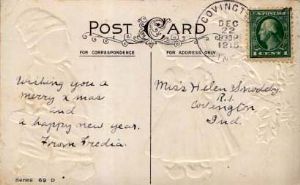 POST CARD
FOR CORRESPONDENCE
FOR ADDRESS ONLY
COVINGT
DEC
22
IN
1 CENT 1
Wishing you a
merry xmas
and
a happy new year.
From Fredia.
Miss Helen
R.1
Covington
Ind.
SERIES 69 D